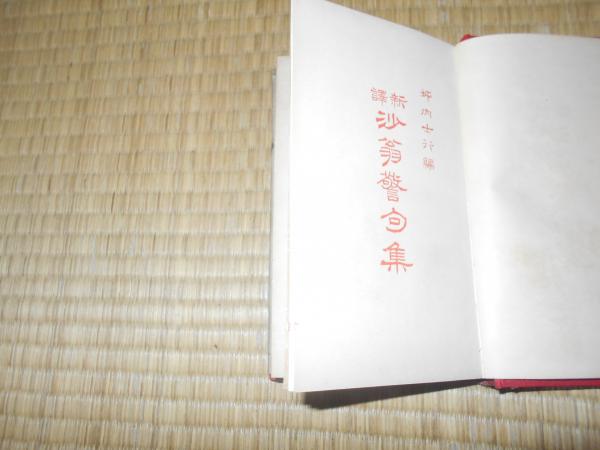 坪内士行編
新譯沙翁警句集